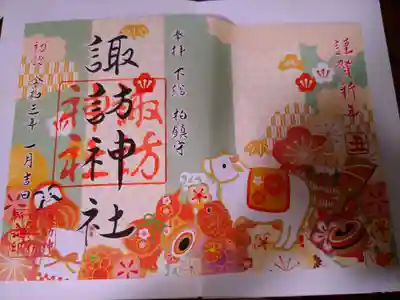 謹賀新年
丑
奉拝 下総 柏鎮守
諏訪神社
諏訪神社
初詣 令和三年 一月吉日